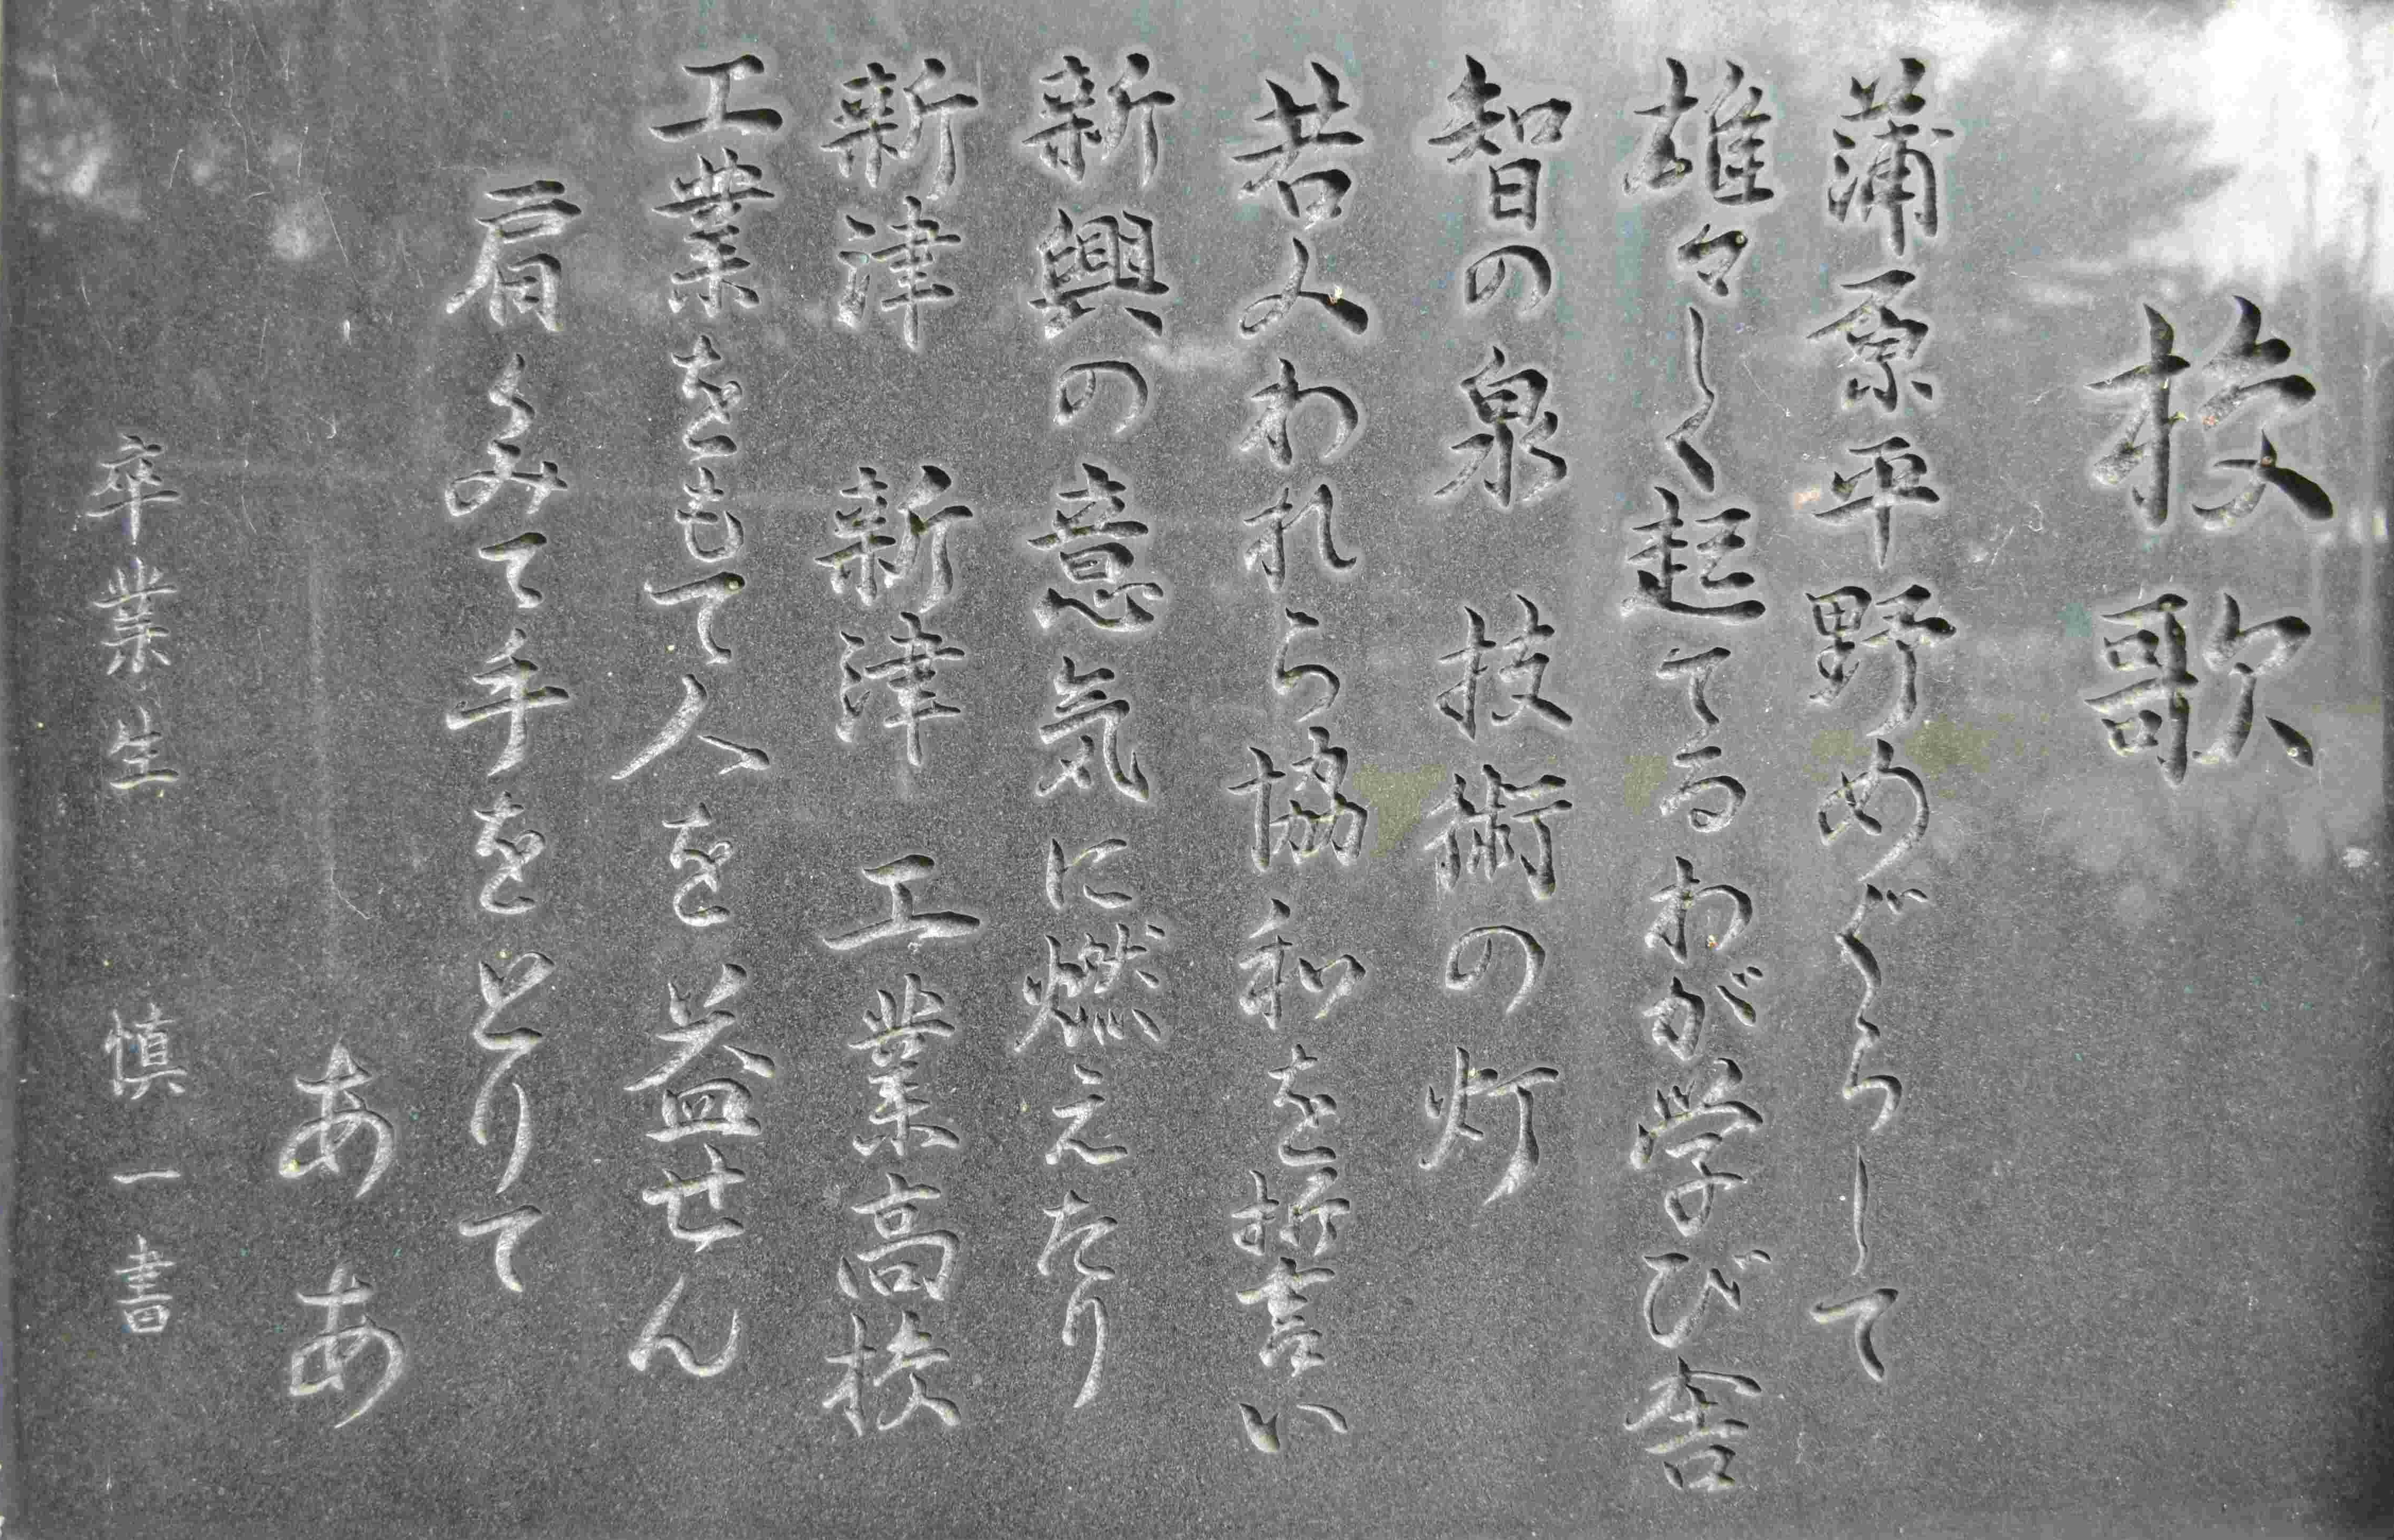 校歌
蒲原平野めぐらして
雄々しく起てるわが学び舎
智の泉 技術の灯
若人われら協和を誓い
新興の意気に燃えたり
新津 新津 工業高校
工業をもて人を益せん
肩くみて手をとりて
ああ
卒業生 慎一書